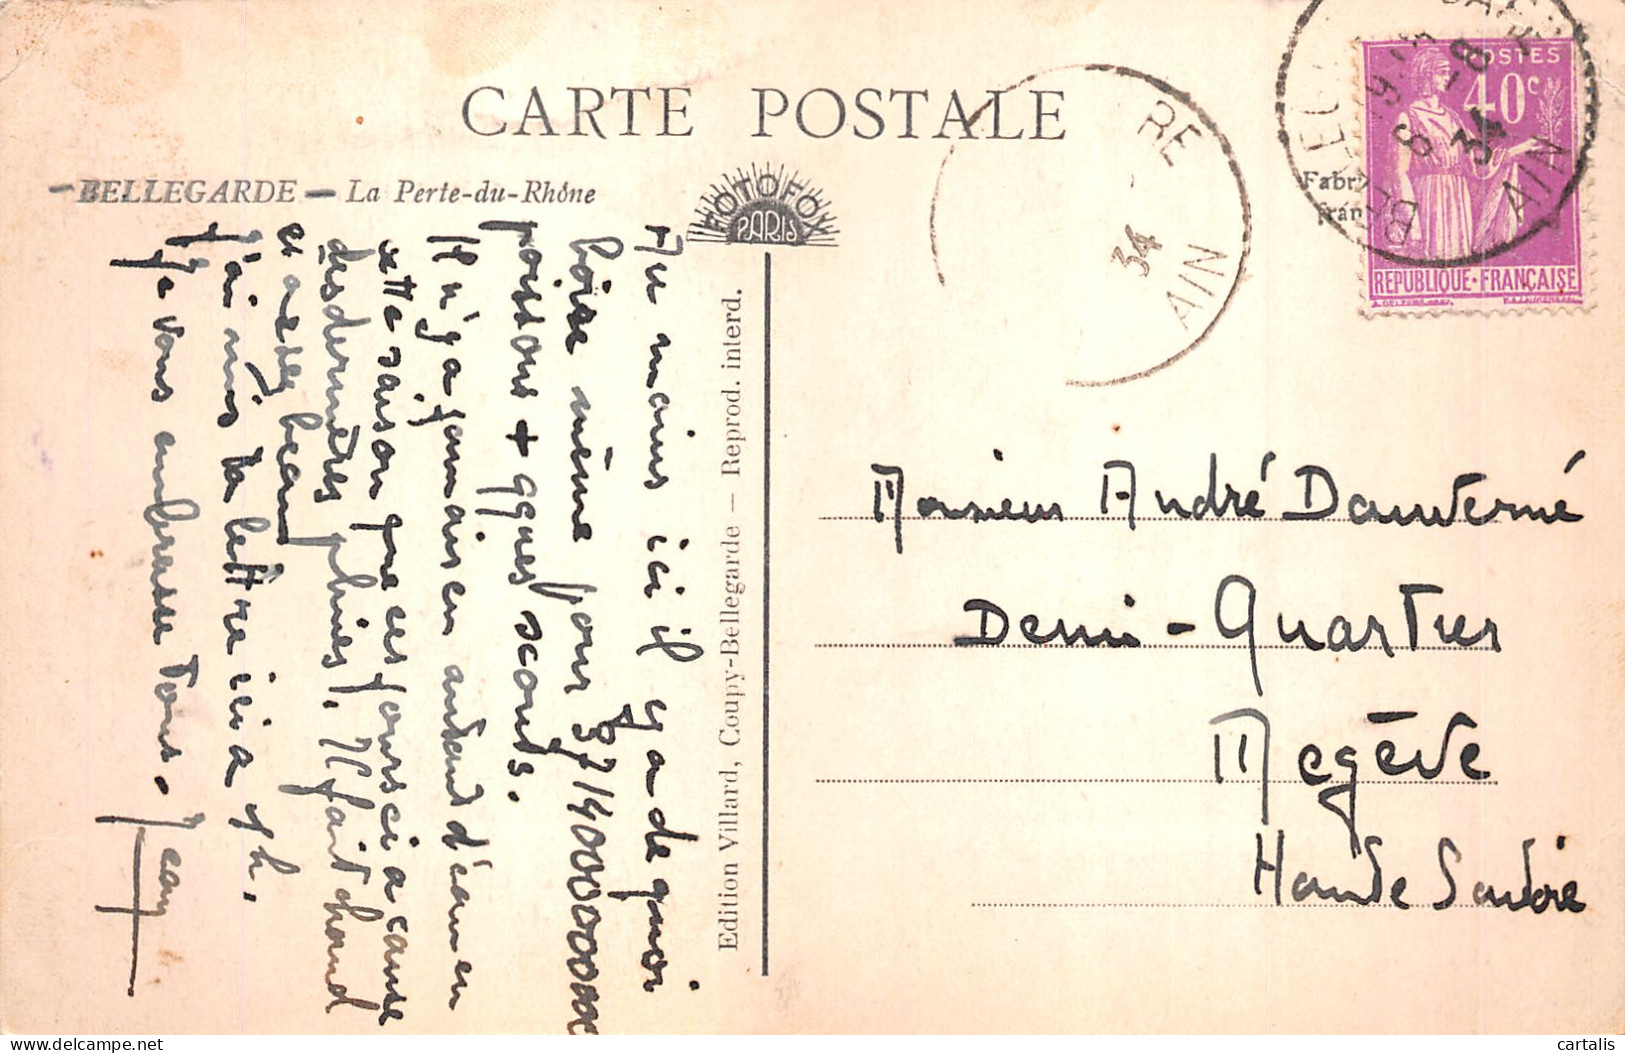 CARTE POSTALE
BELLEGARDE — La Perte-du-Rhône
PHOTOFOX
PARIS
Edition Villard, Coupy-Bellegarde — Reprod. interd.
Au moins ici il y a de quoi
boire même pour
poissons + qques scouts.
Il n'y a jamais eu autant d'eau en
cette saison que ces jours ci a cause
des dernières pluies. Il fait chaud
et assez beau
J'ai mis ta lettre ici a 9h.
Je vous embrasse Tous. Jean
RE
34
AIN
BELLEGARDE
AIN
-8
34
POSTES
40c
REPUBLIQUE·FRANÇAISE
Fabri
fran
Monsieur André Dauverné
Demi-Quartier
Megève
Haute Savoie
cartalis